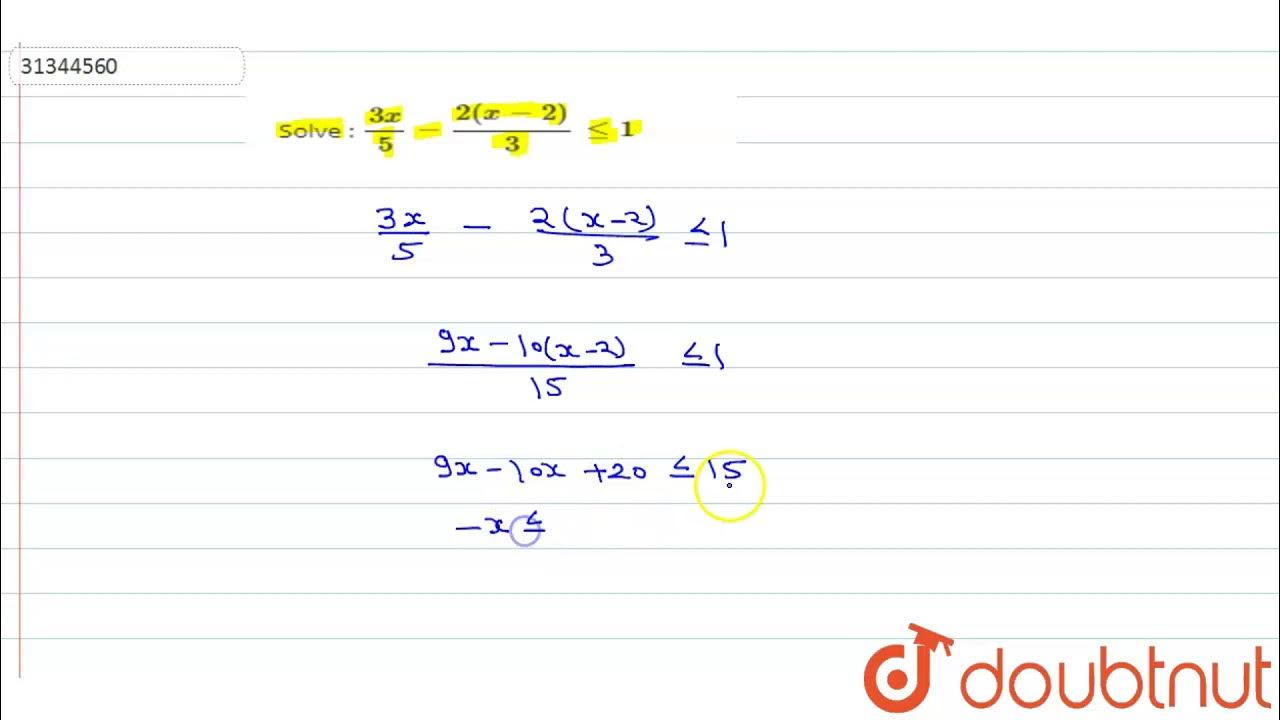 31344560
Solve : 3x/5 - 2(x - 2)/3 ≤ 1
3x/5 - 2(x-2)/3 ≤ 1
9x - 10(x-2)/15 ≤ 1
9x - 10x + 20 ≤ 15
-x ≤
doubtnut